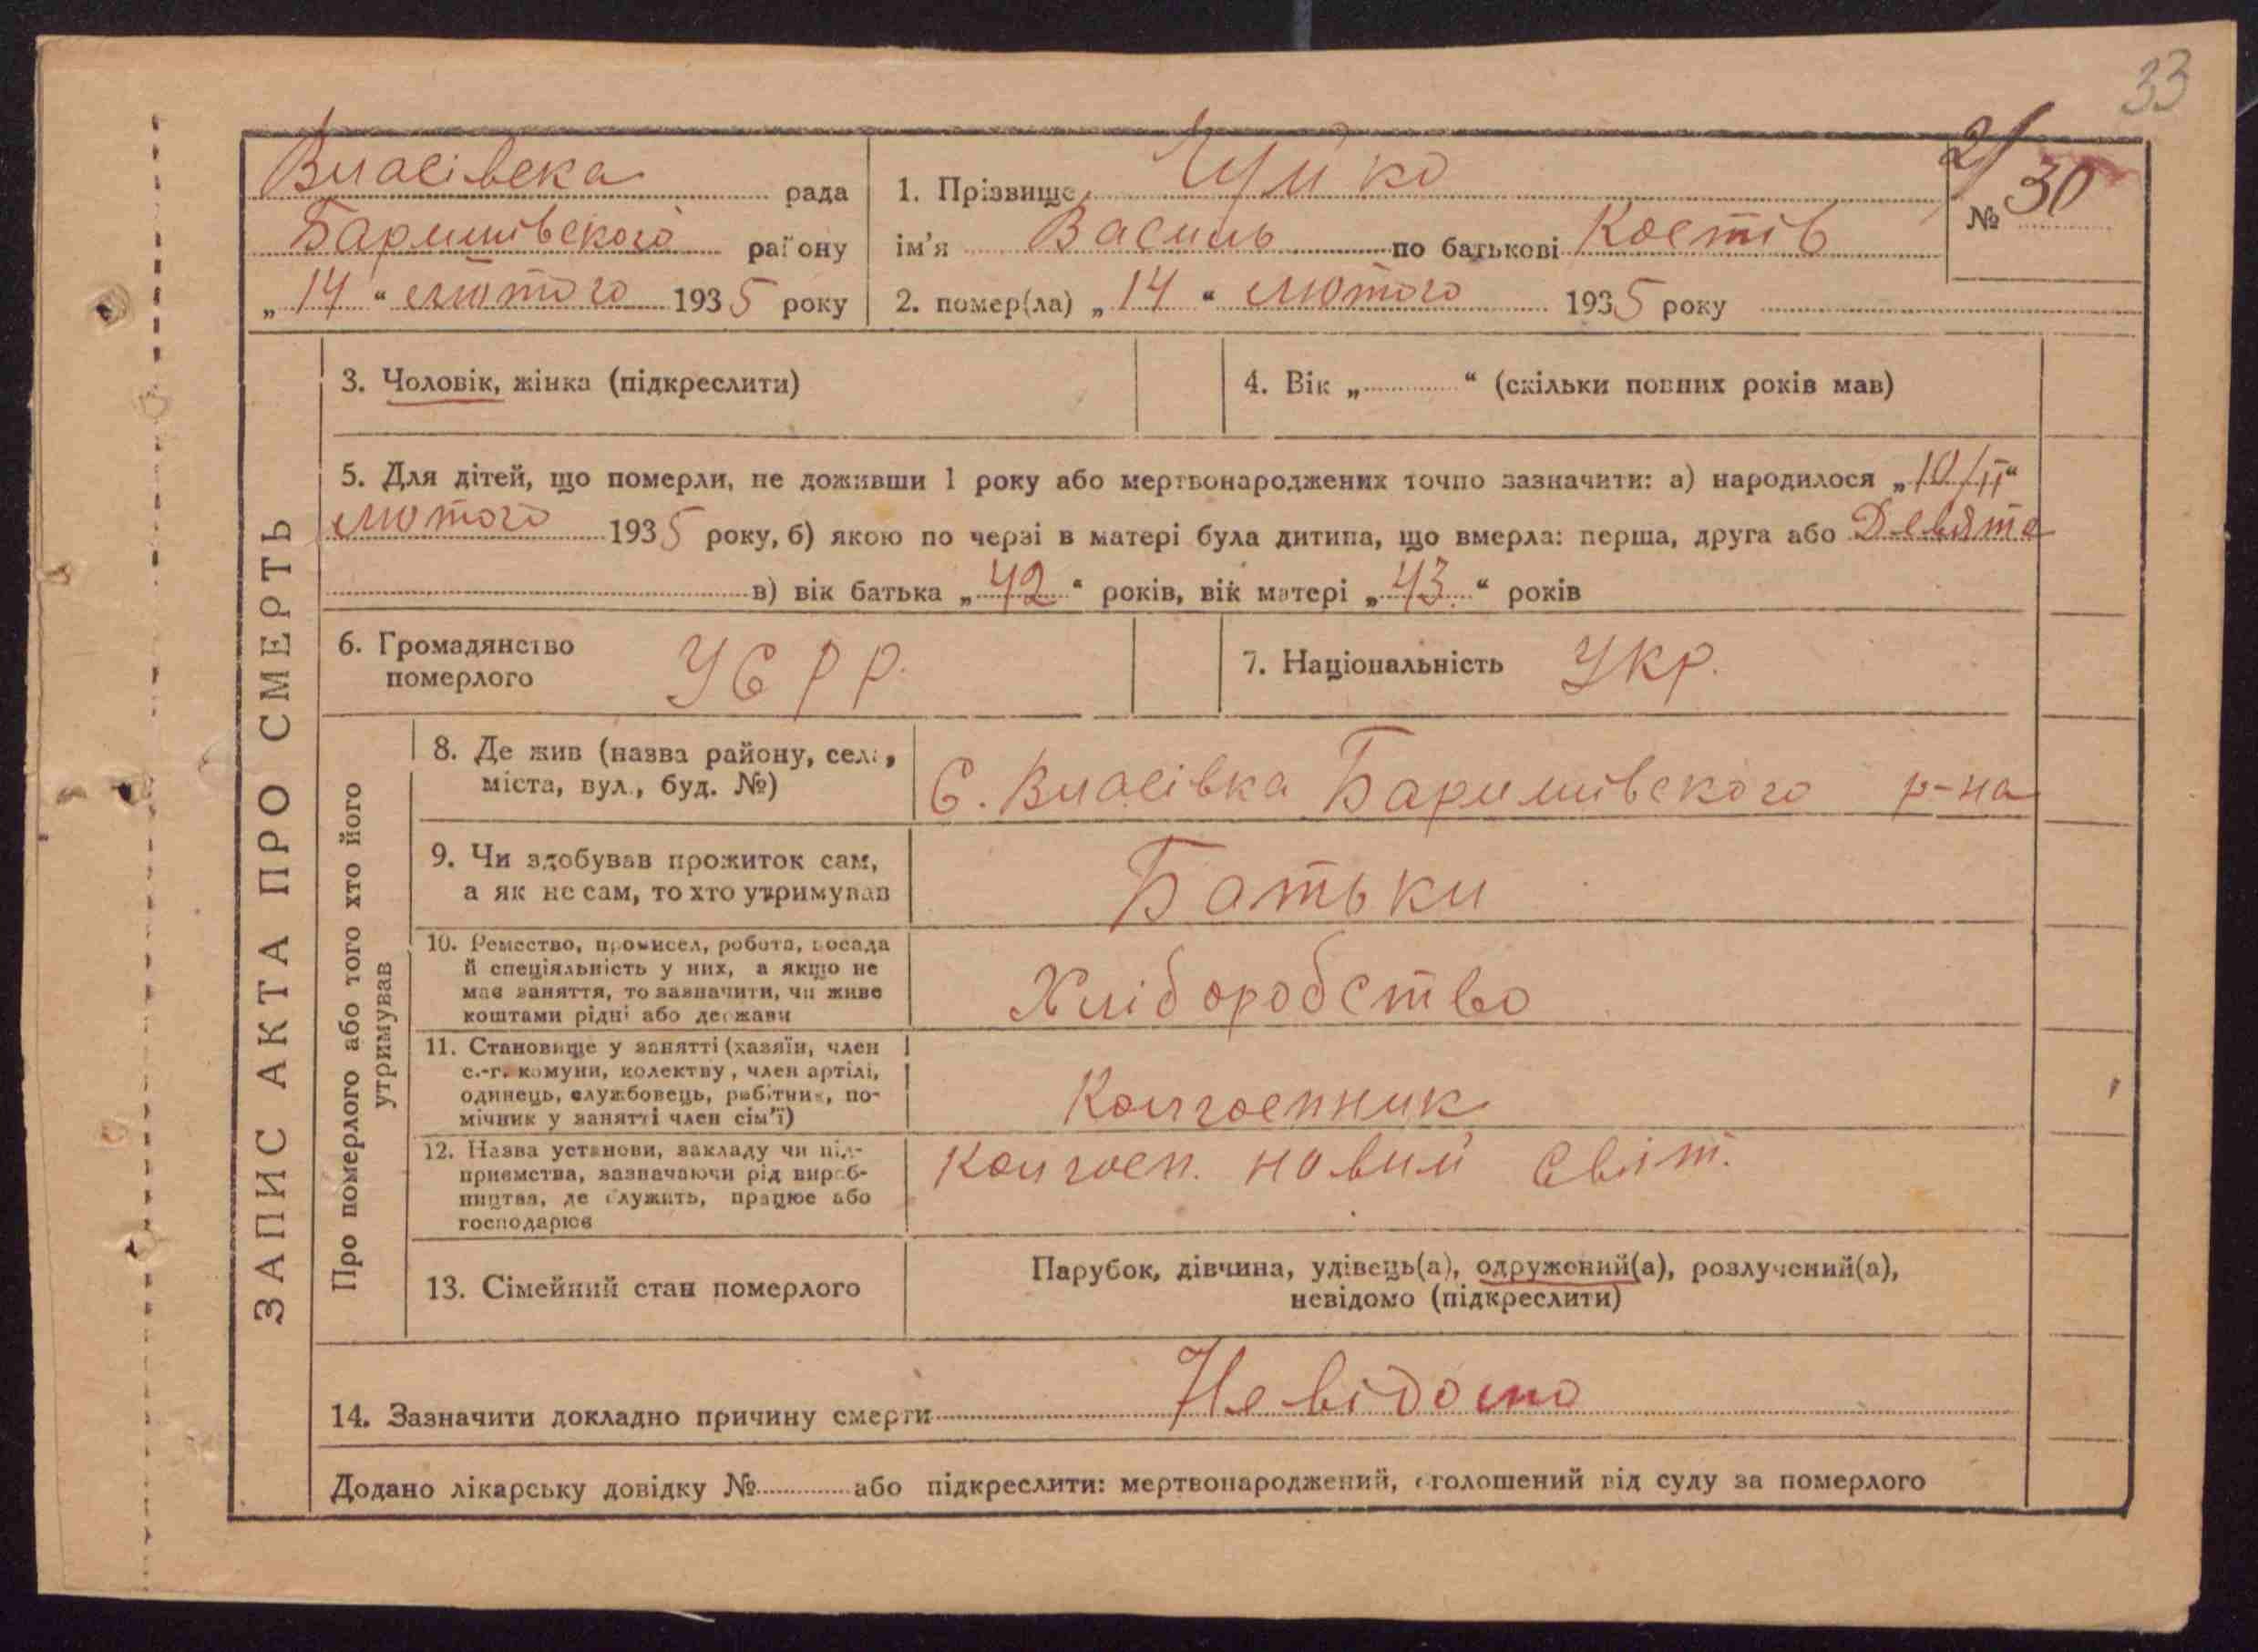 33
Власівска рада
Баришівского району
„ 14 “ лютого 1935 року
1. Прізвище Чуйко
ім'я Василь по батькові Костів
2. помер(ла) „ 14 “ лютого 1935 року
2/
№ 30
ЗАПИС АКТА ПРО СМЕРТЬ
3. Чоловік, жінка (підкреслити)
4. Вік „ “ (скільки повних років мав)
5. Для дітей, що померли, не доживши 1 року або мертвонароджених точно зазначити: а) народилося „10/II“
лютого 1935 року, б) якою по черзі в матері була дитина, що вмерла: перша, друга або Девята
в) вік батька „ 42 “ років, вік матері „ 43 “ років
6. Громадянство
померлого
УСРР.
7. Національність Укр.
Про померлого або того хто його
утримував
8. Де жив (назва району, села,
міста, вул., буд. №)
С. Власівка Баришівского р-на
9. Чи здобував прожиток сам,
а як не сам, то хто утримував
Батьки
10. Ремество, промисел, робота, посада
й спеціяльність у них, а якщо не
має заняття, то зазначити, чи живе
коштами рідні або держави
Хліборобство
11. Становище у занятті (хазяїн, член
с.-г. комуни, колективу, член артілі,
одинець, службовець, робітник, по-
мічник у занятті член сім'ї)
Колгоспник
12. Назва установи, закладу чи під-
приємства, зазначаючи рід вироб-
ництва, де служить, працює або
господарює
Колгосп. новий Світ.
13. Сімейний стан померлого
Парубок, дівчина, удівець(а), одружений(а), розлучений(а),
невідомо (підкреслити)
14. Зазначити докладно причину смерти Невідомо
Додано лікарську довідку № або підкреслити: мертвонароджений, оголошений від суду за померлого